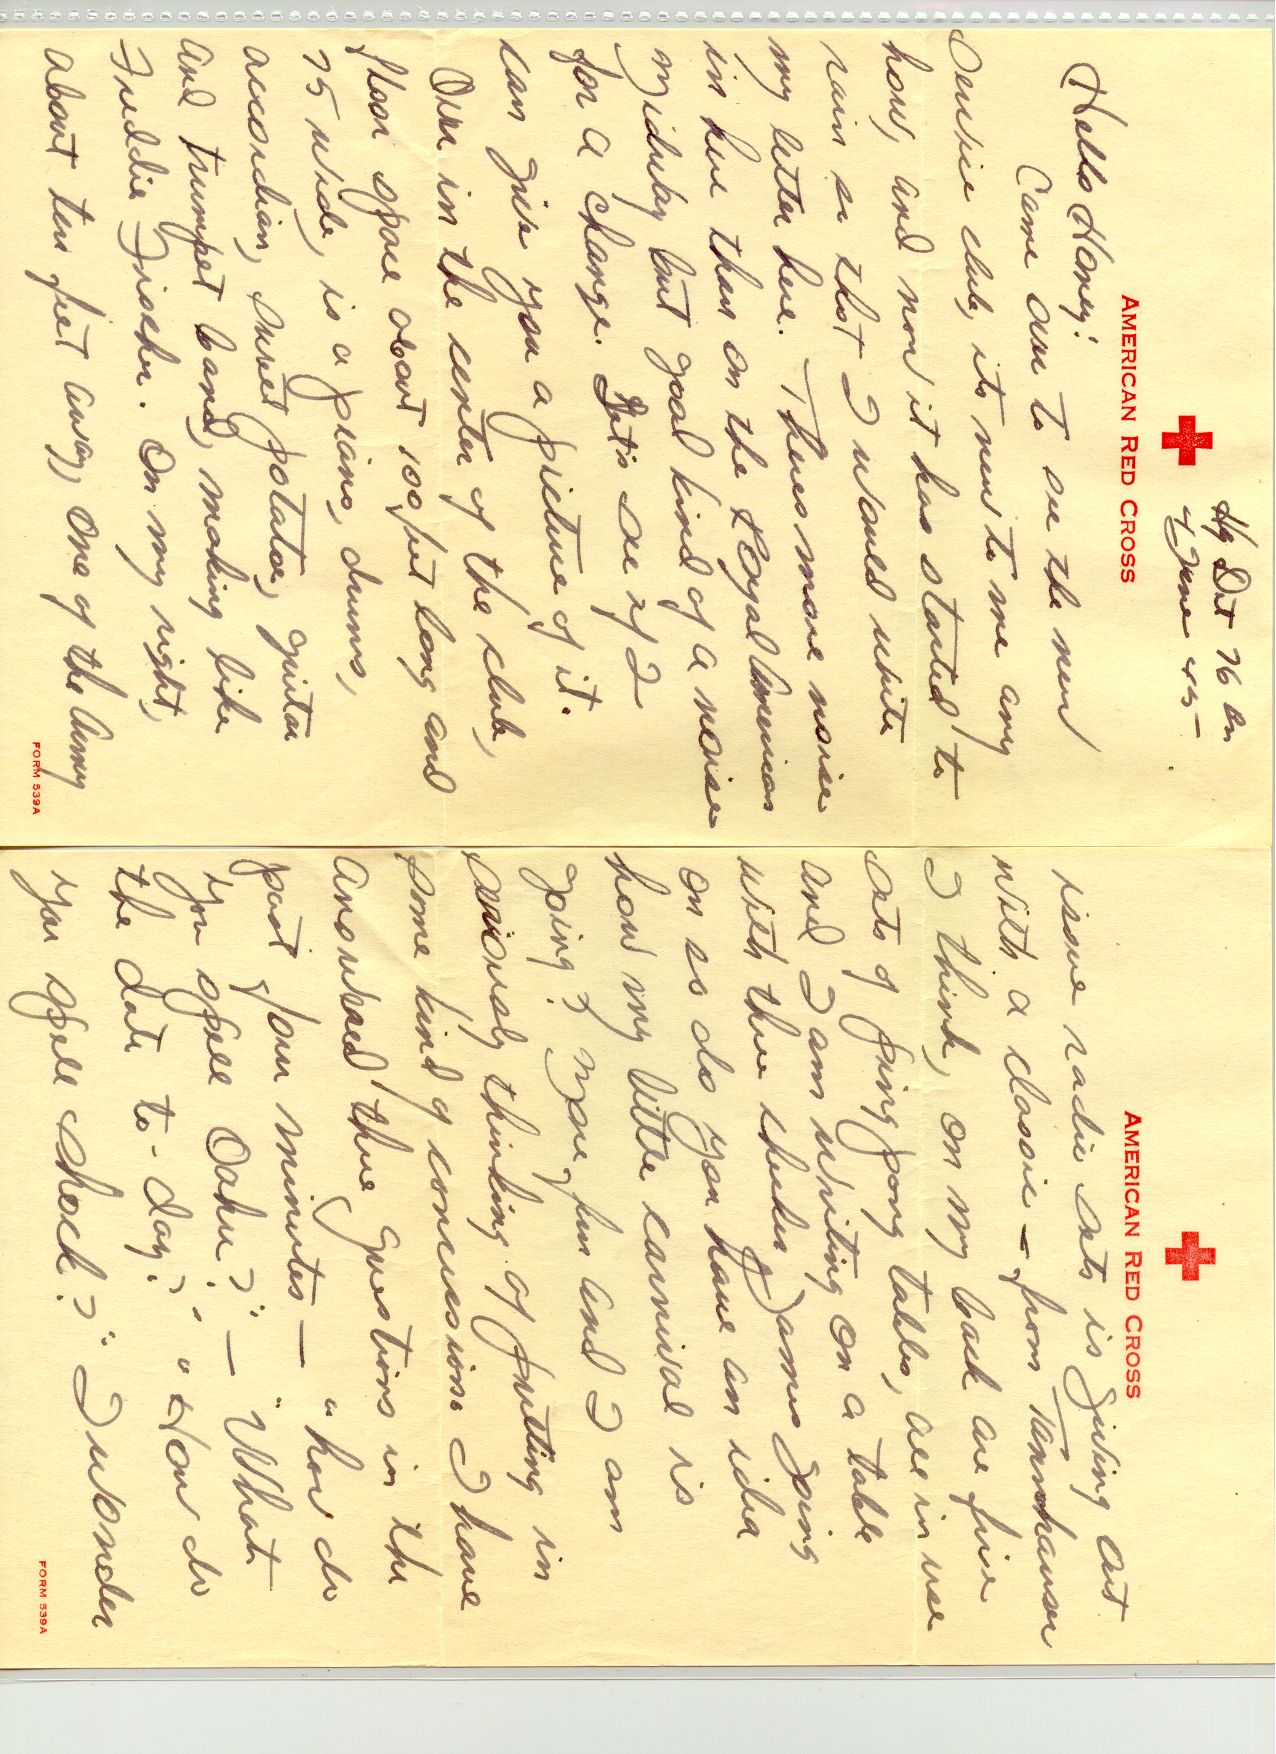 Hq Det 76 En
4 June 45
AMERICAN RED CROSS
Hello Honey!
Came over to see the new
Service club, its new to me any
how, and now it has started to
rain so that I would write
my letter here. Theres more noise
in here than on the Royal American
midway but good kind of a noise
for a change. Let's see if I
can give you a picture of it.
Over in the center of the club,
floor space about 100 feet long and
75 wide, is a piano, drums,
accordian, sweet potatoe, guitar
and trumpet band, making like
Freddie Fischer. On my right,
about ten feet away, one of the Army
FORM 539A
AMERICAN RED CROSS
issue radio sets is giving out
with a classic - from Tannhauser
I think, on my back are five
sets of ping pong tables, all in use
and I am writing on a table
with three checker games going
on so do you have an idea
how my little carnival is
going? More fun and I am
seriously thinking of putting in
some kind of concession. I have
answered three questions in the
past four minutes — "how do
you spell Oahu?" — "What
the date to-day?" "How do
you spell check?" I wonder
FORM 539A